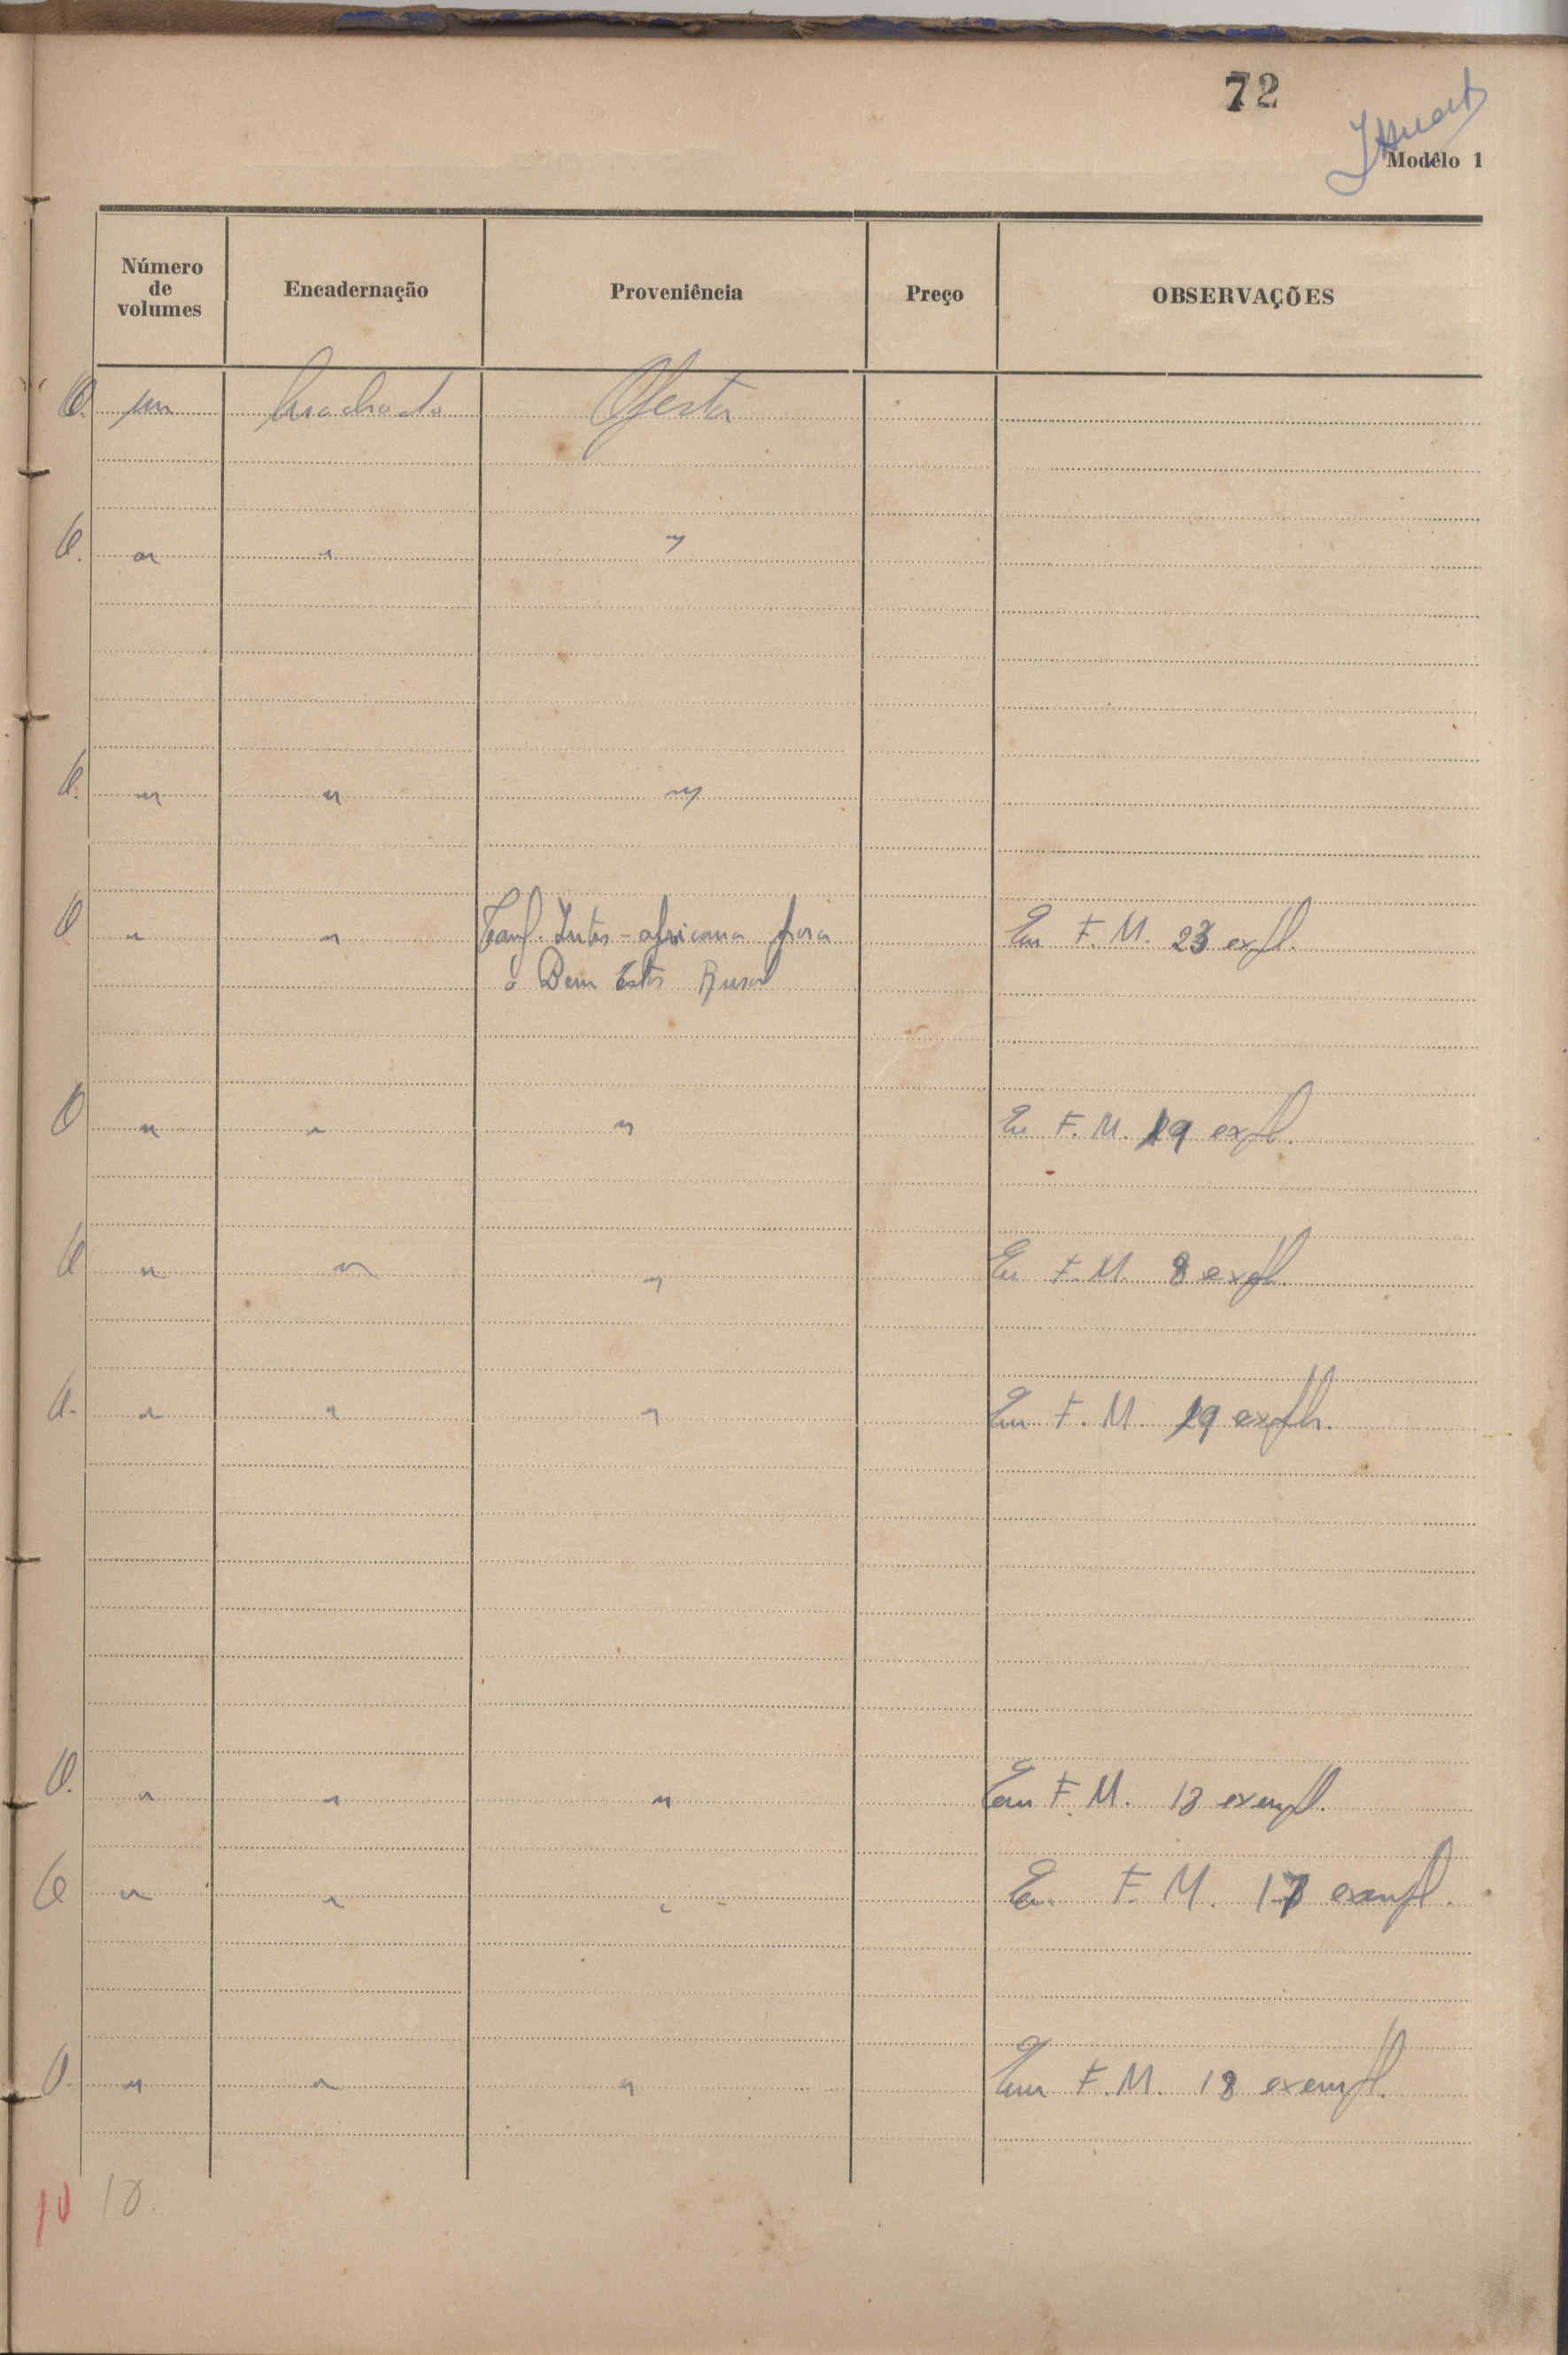 72
Modêlo 1
Número de volumes Encadernação Proveniência Preço OBSERVAÇÕES
O. um Oferta
O. " " "
O. " " "
O " " Conf. Inter-africana para Em F. M. 23 expl.
o Bem Estar Rural
O " " " Em F. M. 19 expl.
O " " " Em F. M. 8 expl.
O. " " " Em F. M. 19 explr.
O. " " " Em F. M. 18 exempl.
O " " " Em F. M. 17 exempl.
O. " " " Em F. M. 18 exempl.
10 10.